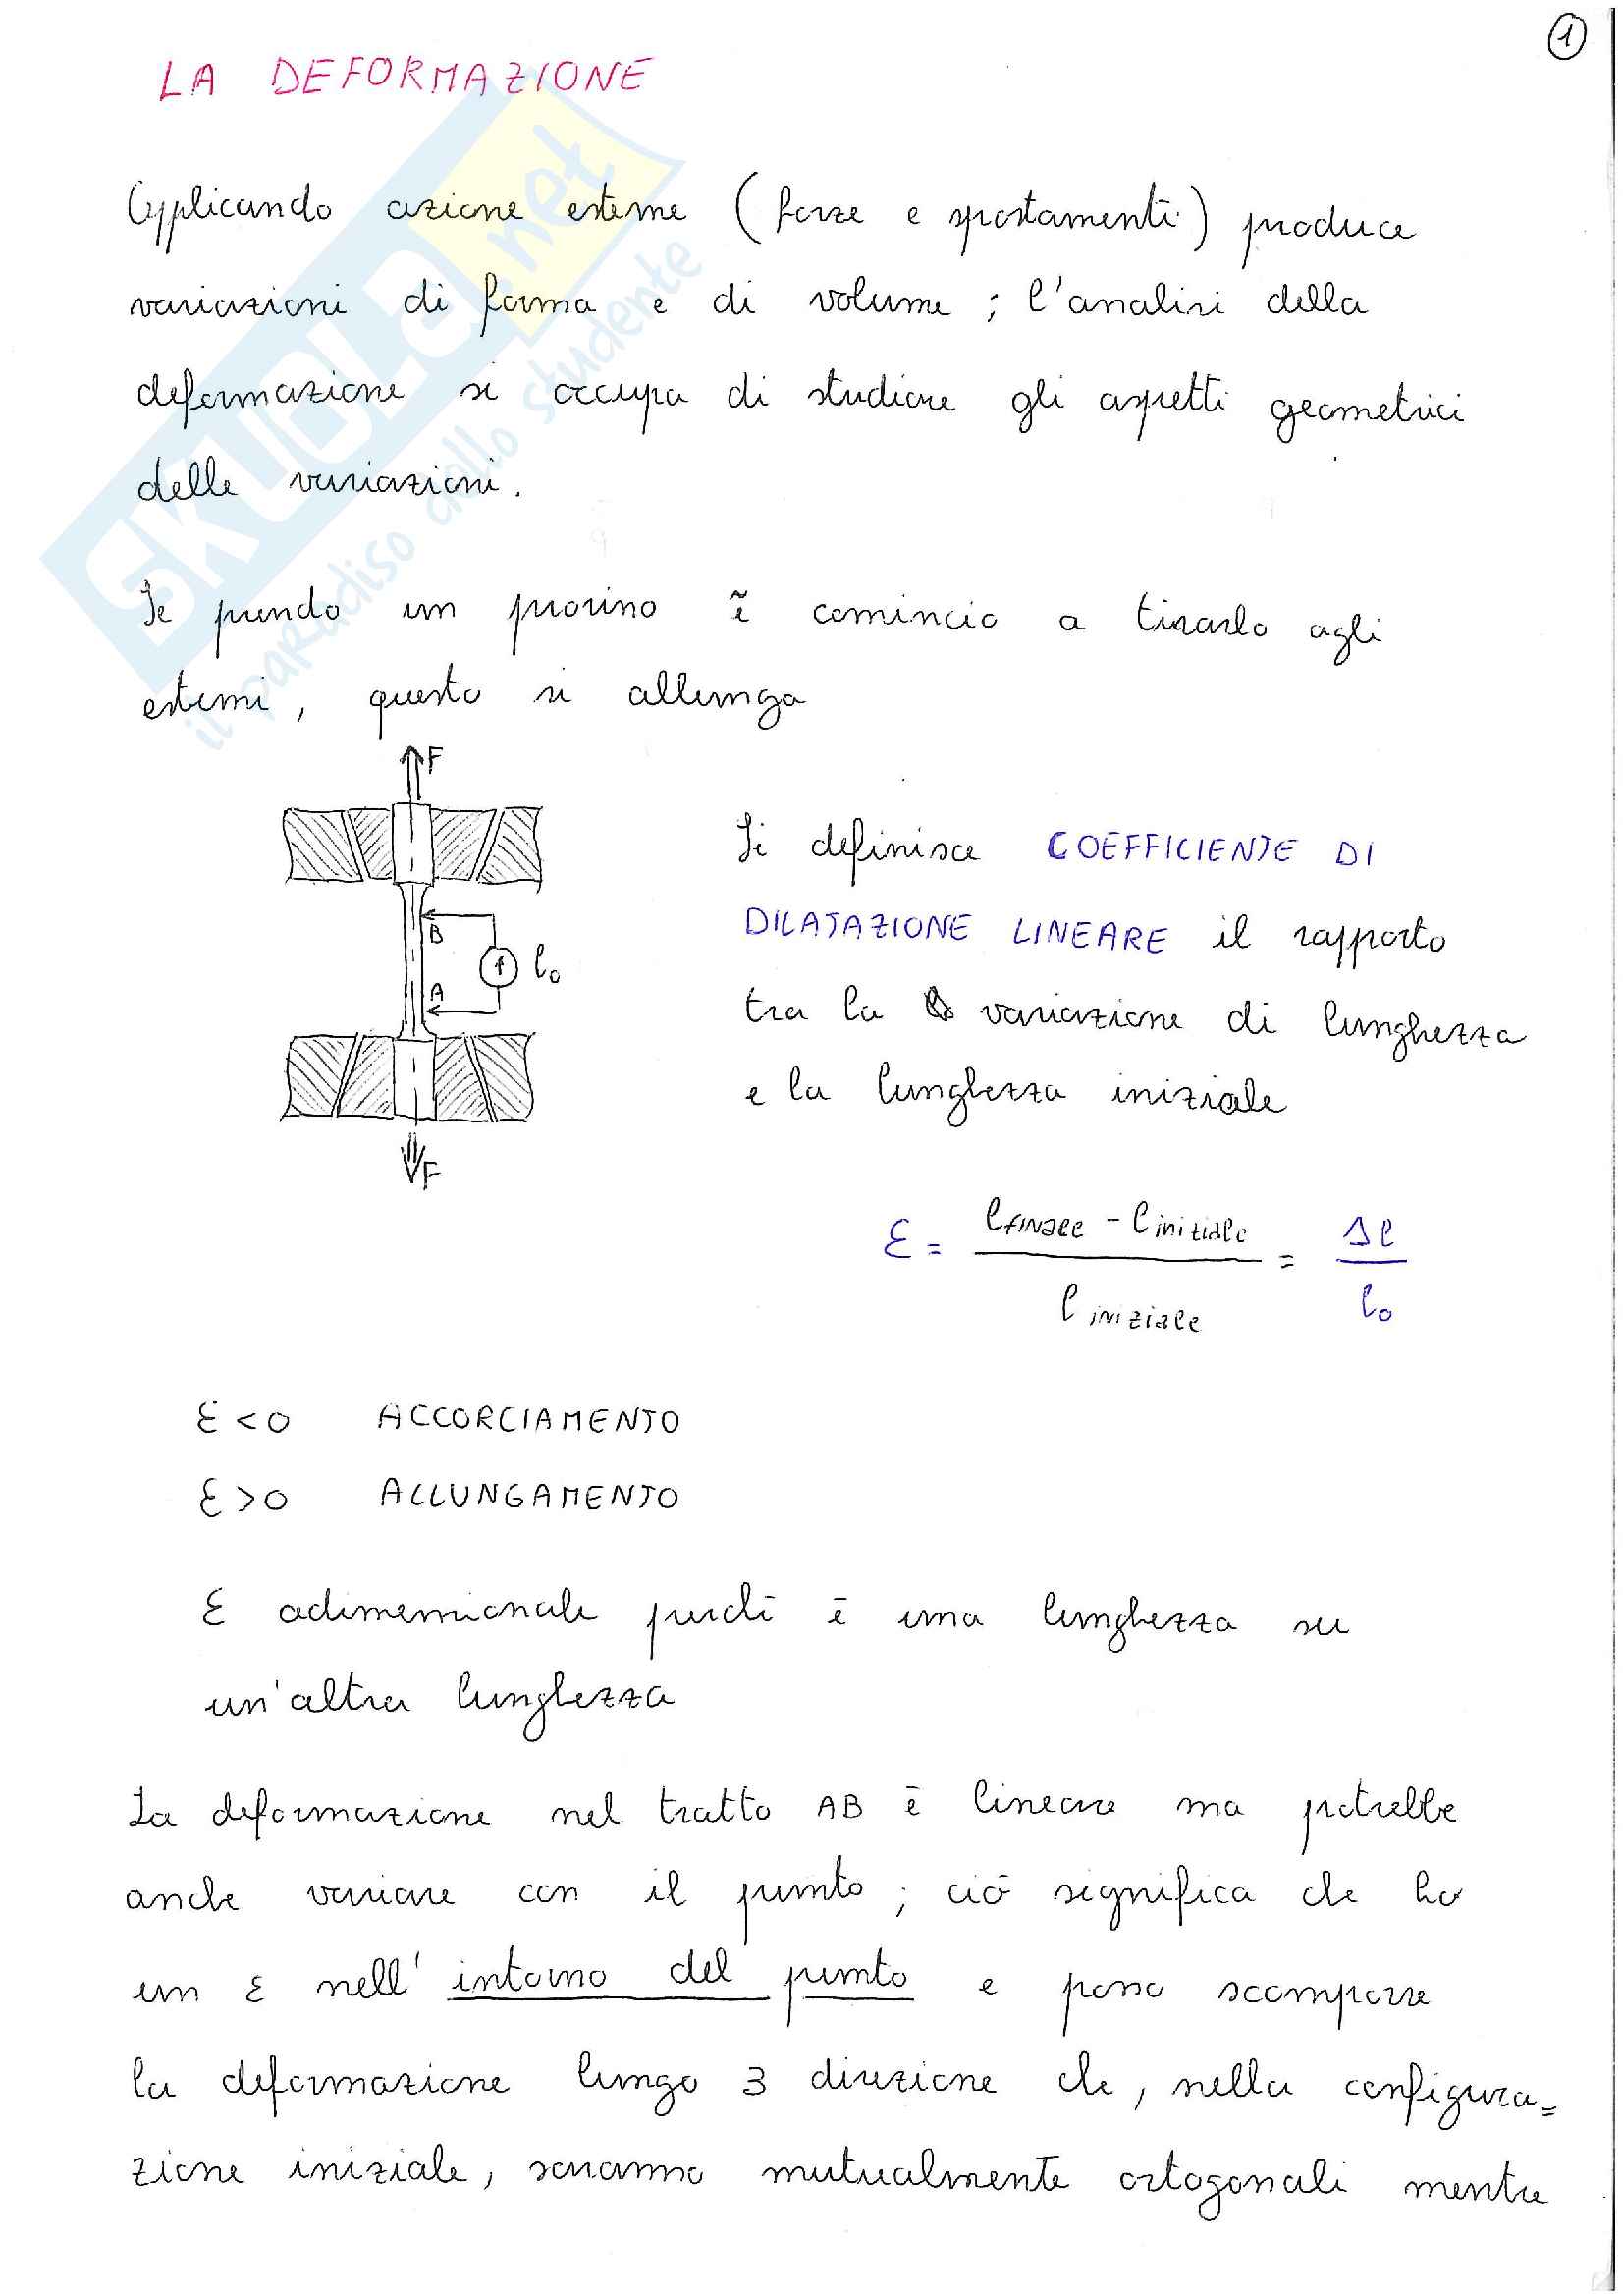 1
LA DEFORMAZIONE
Applicando azione esterne (forze e spostamenti) produce
variazioni di forma e di volume ; l'analisi della
deformazione si occupa di studiare gli aspetti geometrici
delle variazioni.
Se prendo un provino e comincio a tirarlo agli
estremi, questo si allunga
F
B
A
l₀
F
Si definisce COEFFICIENTE DI
DILATAZIONE LINEARE il rapporto
tra la variazione di lunghezza
e la lunghezza iniziale
ε = (l finale - l iniziale) / l iniziale = Δl / l₀
ε < 0 ACCORCIAMENTO
ε > 0 ALLUNGAMENTO
ε adimensionale perché è una lunghezza su
un'altra lunghezza
La deformazione nel tratto AB è lineare ma potrebbe
anche variare con il punto ; ciò significa che ho
un ε nell' intorno del punto e posso scomporre
la deformazione lungo 3 direzione che, nella configura=
zione iniziale, saranno mutualmente ortogonali mentre
SKUOLA.net
il paradiso dello studente